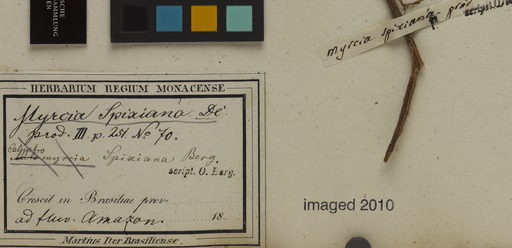 SCHE
SAMMLUNG
EN
Myrcia spixiana prod
script.
HERBARIUM REGIUM MONACENSE
Myrcia Spixiana De
prod. III. p. 251 No 70.
Calyptro
myrcia Spixiana Berg.
script. O. Berg.
Crescit in Brasiliae prov.
ad fluv. Amazon. 18
Martius Iter Brasiliense.
imaged 2010